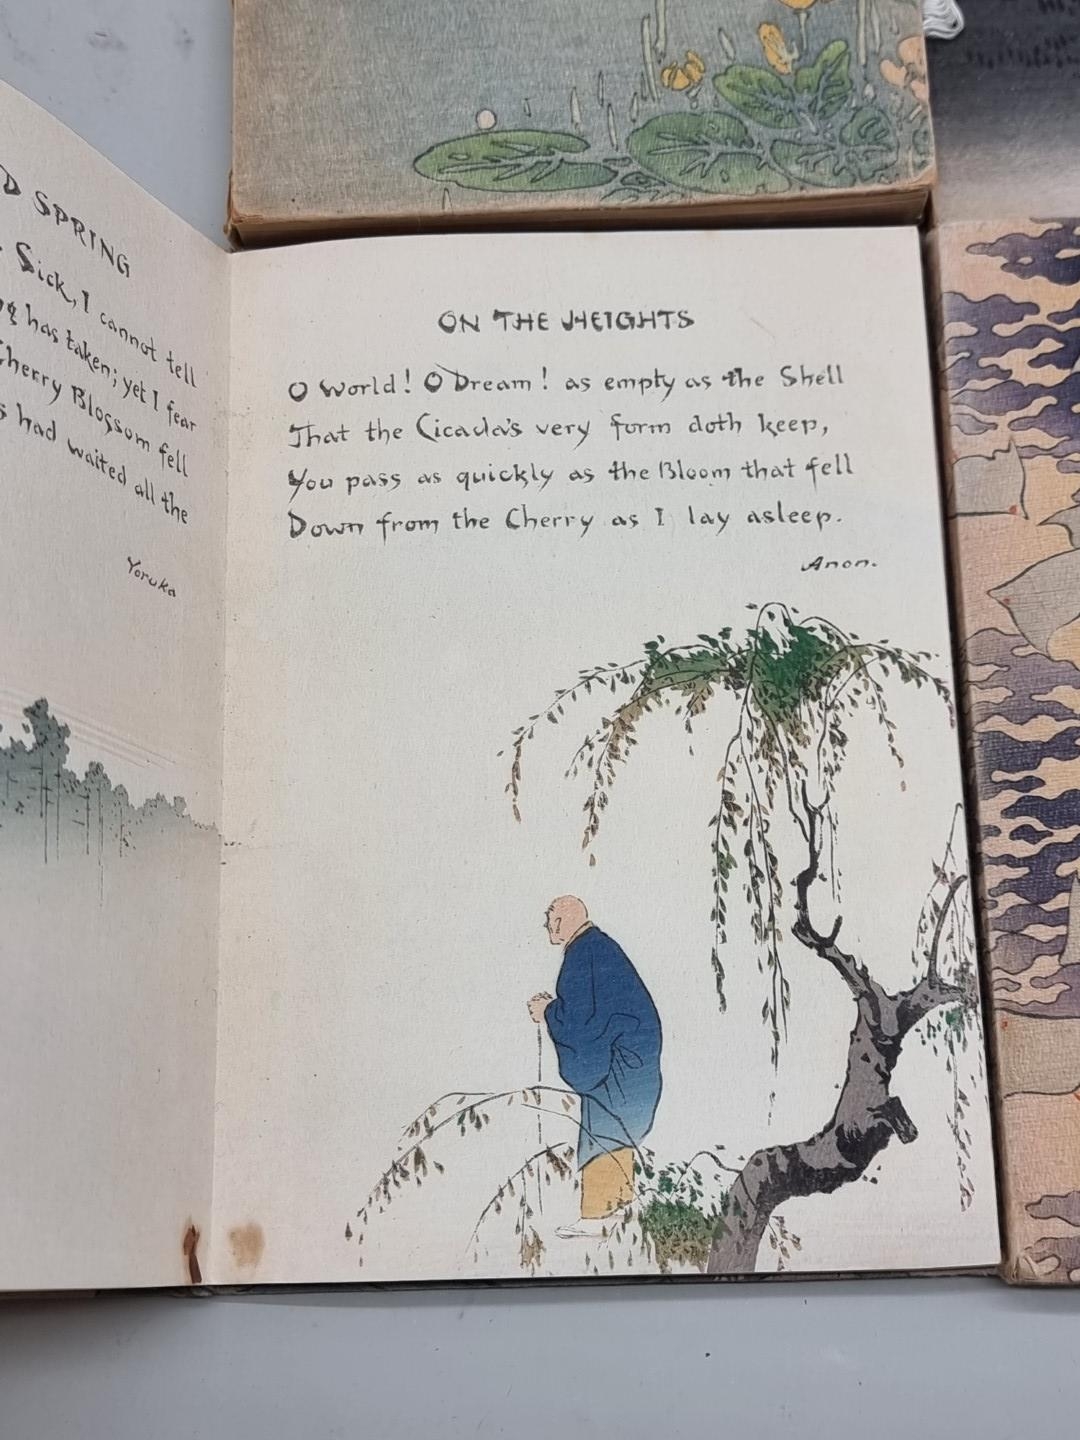 D SPRING
Sick, I cannot tell
has taken; yet I fear
Cherry Blossom fell
had waited all the
Yoruka
ON THE HEIGHTS
O World! O Dream! as empty as the Shell
That the Cicada's very form doth keep,
You pass as quickly as the Bloom that fell
Down from the Cherry as I lay asleep.
Anon.